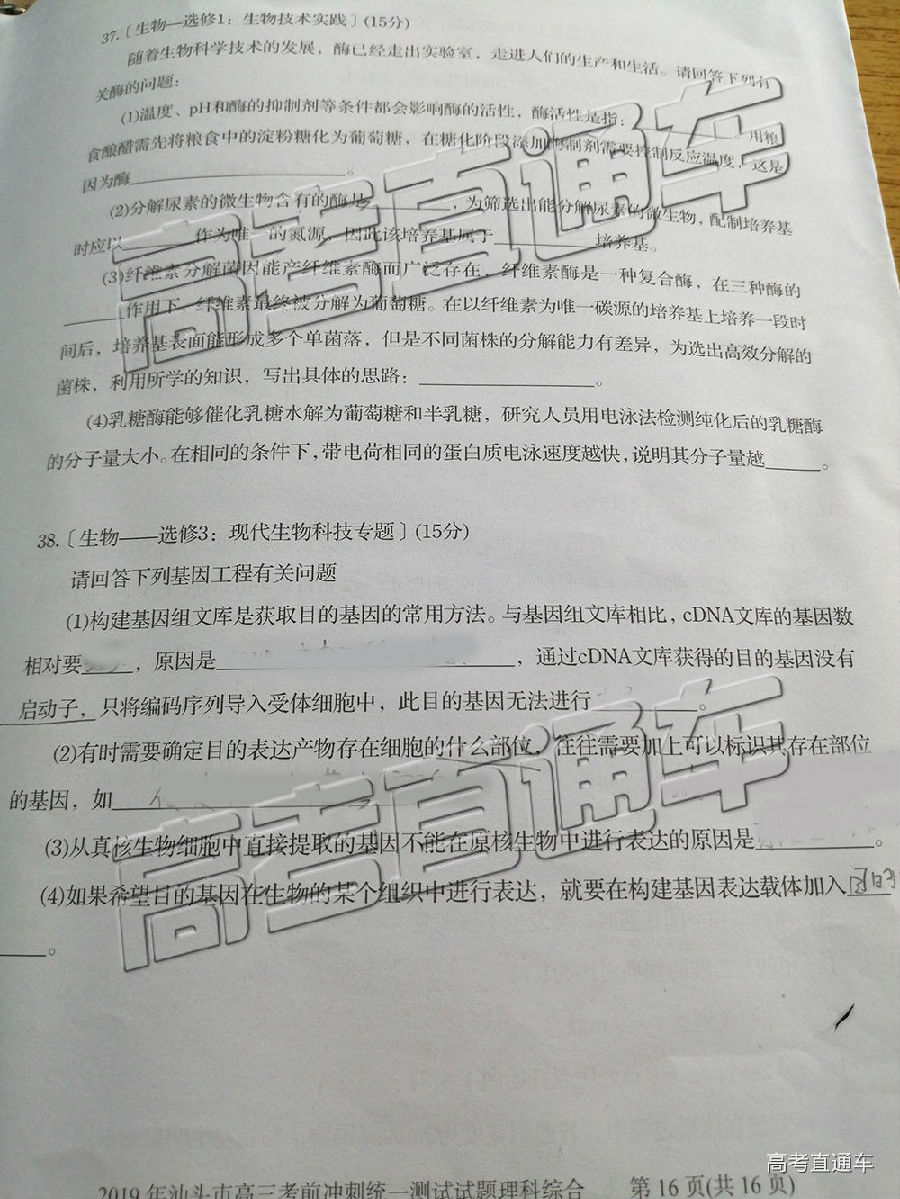 37.〔生物—选修1：生物技术实践〕(15分)
随着生物科学技术的发展，酶已经走出实验室，走进人们的生产和生活。请回答下列有
关酶的问题：
(1)温度、pH和酶的抑制剂等条件都会影响酶的活性，酶活性是指：。用粮
食酿醋需先将粮食中的淀粉糖化为葡萄糖，在糖化阶段添加酶制剂需要控制反应温度，这是
因为酶。
(2)分解尿素的微生物含有的酶是，为筛选出能分解尿素的微生物，配制培养基
时应以作为唯一的氮源，因此该培养基属于培养基。
(3)纤维素分解菌因能产纤维素酶而广泛存在，纤维素酶是一种复合酶，在三种酶的
作用下，纤维素最终被分解为葡萄糖。在以纤维素为唯一碳源的培养基上培养一段时
间后，培养基表面能形成多个单菌落，但是不同菌株的分解能力有差异，为选出高效分解的
菌株，利用所学的知识，写出具体的思路：。
(4)乳糖酶能够催化乳糖水解为葡萄糖和半乳糖，研究人员用电泳法检测纯化后的乳糖酶
的分子量大小。在相同的条件下，带电荷相同的蛋白质电泳速度越快，说明其分子量越。
38.〔生物——选修3：现代生物科技专题〕(15分)
请回答下列基因工程有关问题
(1)构建基因组文库是获取目的基因的常用方法。与基因组文库相比，cDNA文库的基因数
相对要，原因是，通过cDNA文库获得的目的基因没有
启动子，只将编码序列导入受体细胞中，此目的基因无法进行。
(2)有时需要确定目的表达产物存在细胞的什么部位，往往需要加上可以标识其存在部位
的基因，如
(3)从真核生物细胞中直接提取的基因不能在原核生物中进行表达的原因是。
(4)如果希望目的基因在生物的某个组织中进行表达，就要在构建基因表达载体加入
。
2019年汕头市高三考前冲刺统一测试试题理科综合 第16页(共16页)
高考直通车
高考直通车
高考直通车